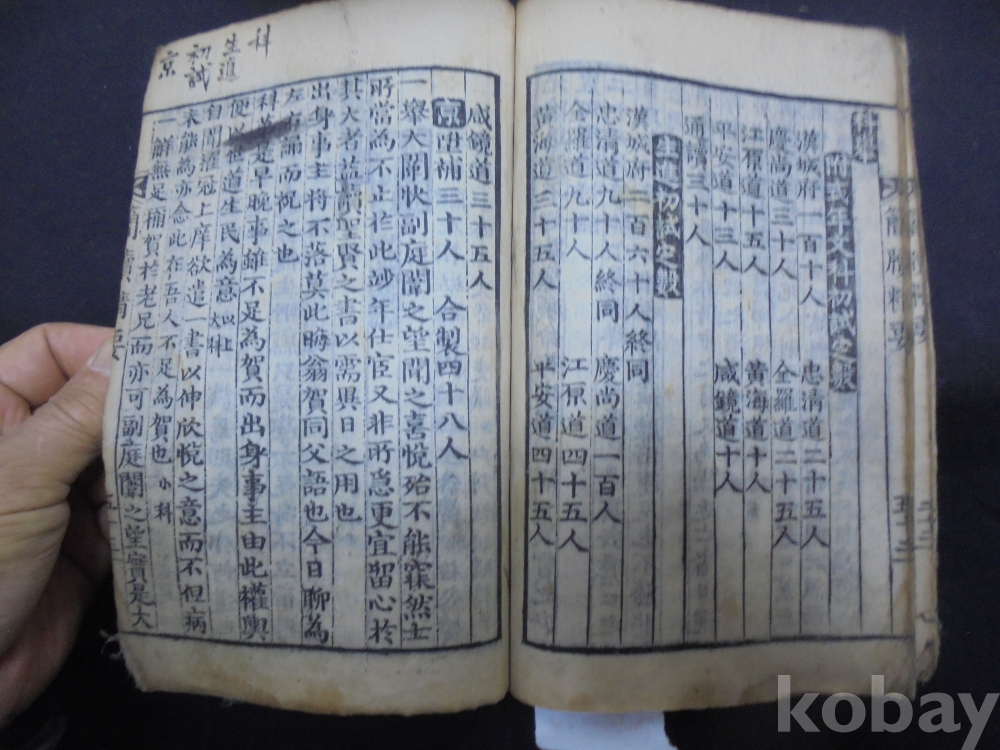 簡牘精要
式年文科初試定數
漢城府一百十人 忠清道二十五人
慶尚道三十人 全羅道二十五人
江原道十五人 黃海道十人
平安道十三人 咸鏡道十人
通讀三十人
生進初試定數
漢城府二百六十人終同
忠清道九十人終同 慶尚道一百人
全羅道九十人 江原道四十五人
黃海道三十五人 平安道四十五人
科
生進
初試
京
咸鏡道三十五人
京陞補三十人 合製四十八人
一擧大闡快副庭闈之望聞之喜悅殆不能寐然士
所當為不止於此妙年仕宦又非所急更宜留心於
其大者益讀聖賢之書以需異日之用也
出身事主將不落莫此晦翁賀同父語也今日聊為
左右誦而祝之也
科第是早晚事雖不足為賀而出身事主由此權輿
便以世道生民為意 以上大科
自聞濯冠上庠欲遣一書以伸欣悅之意而不但病
未能為亦念此在吾人不足為賀也 小科
一解無足補賀於老兄而亦可副庭闈之望實是大
簡牘精要
kobay